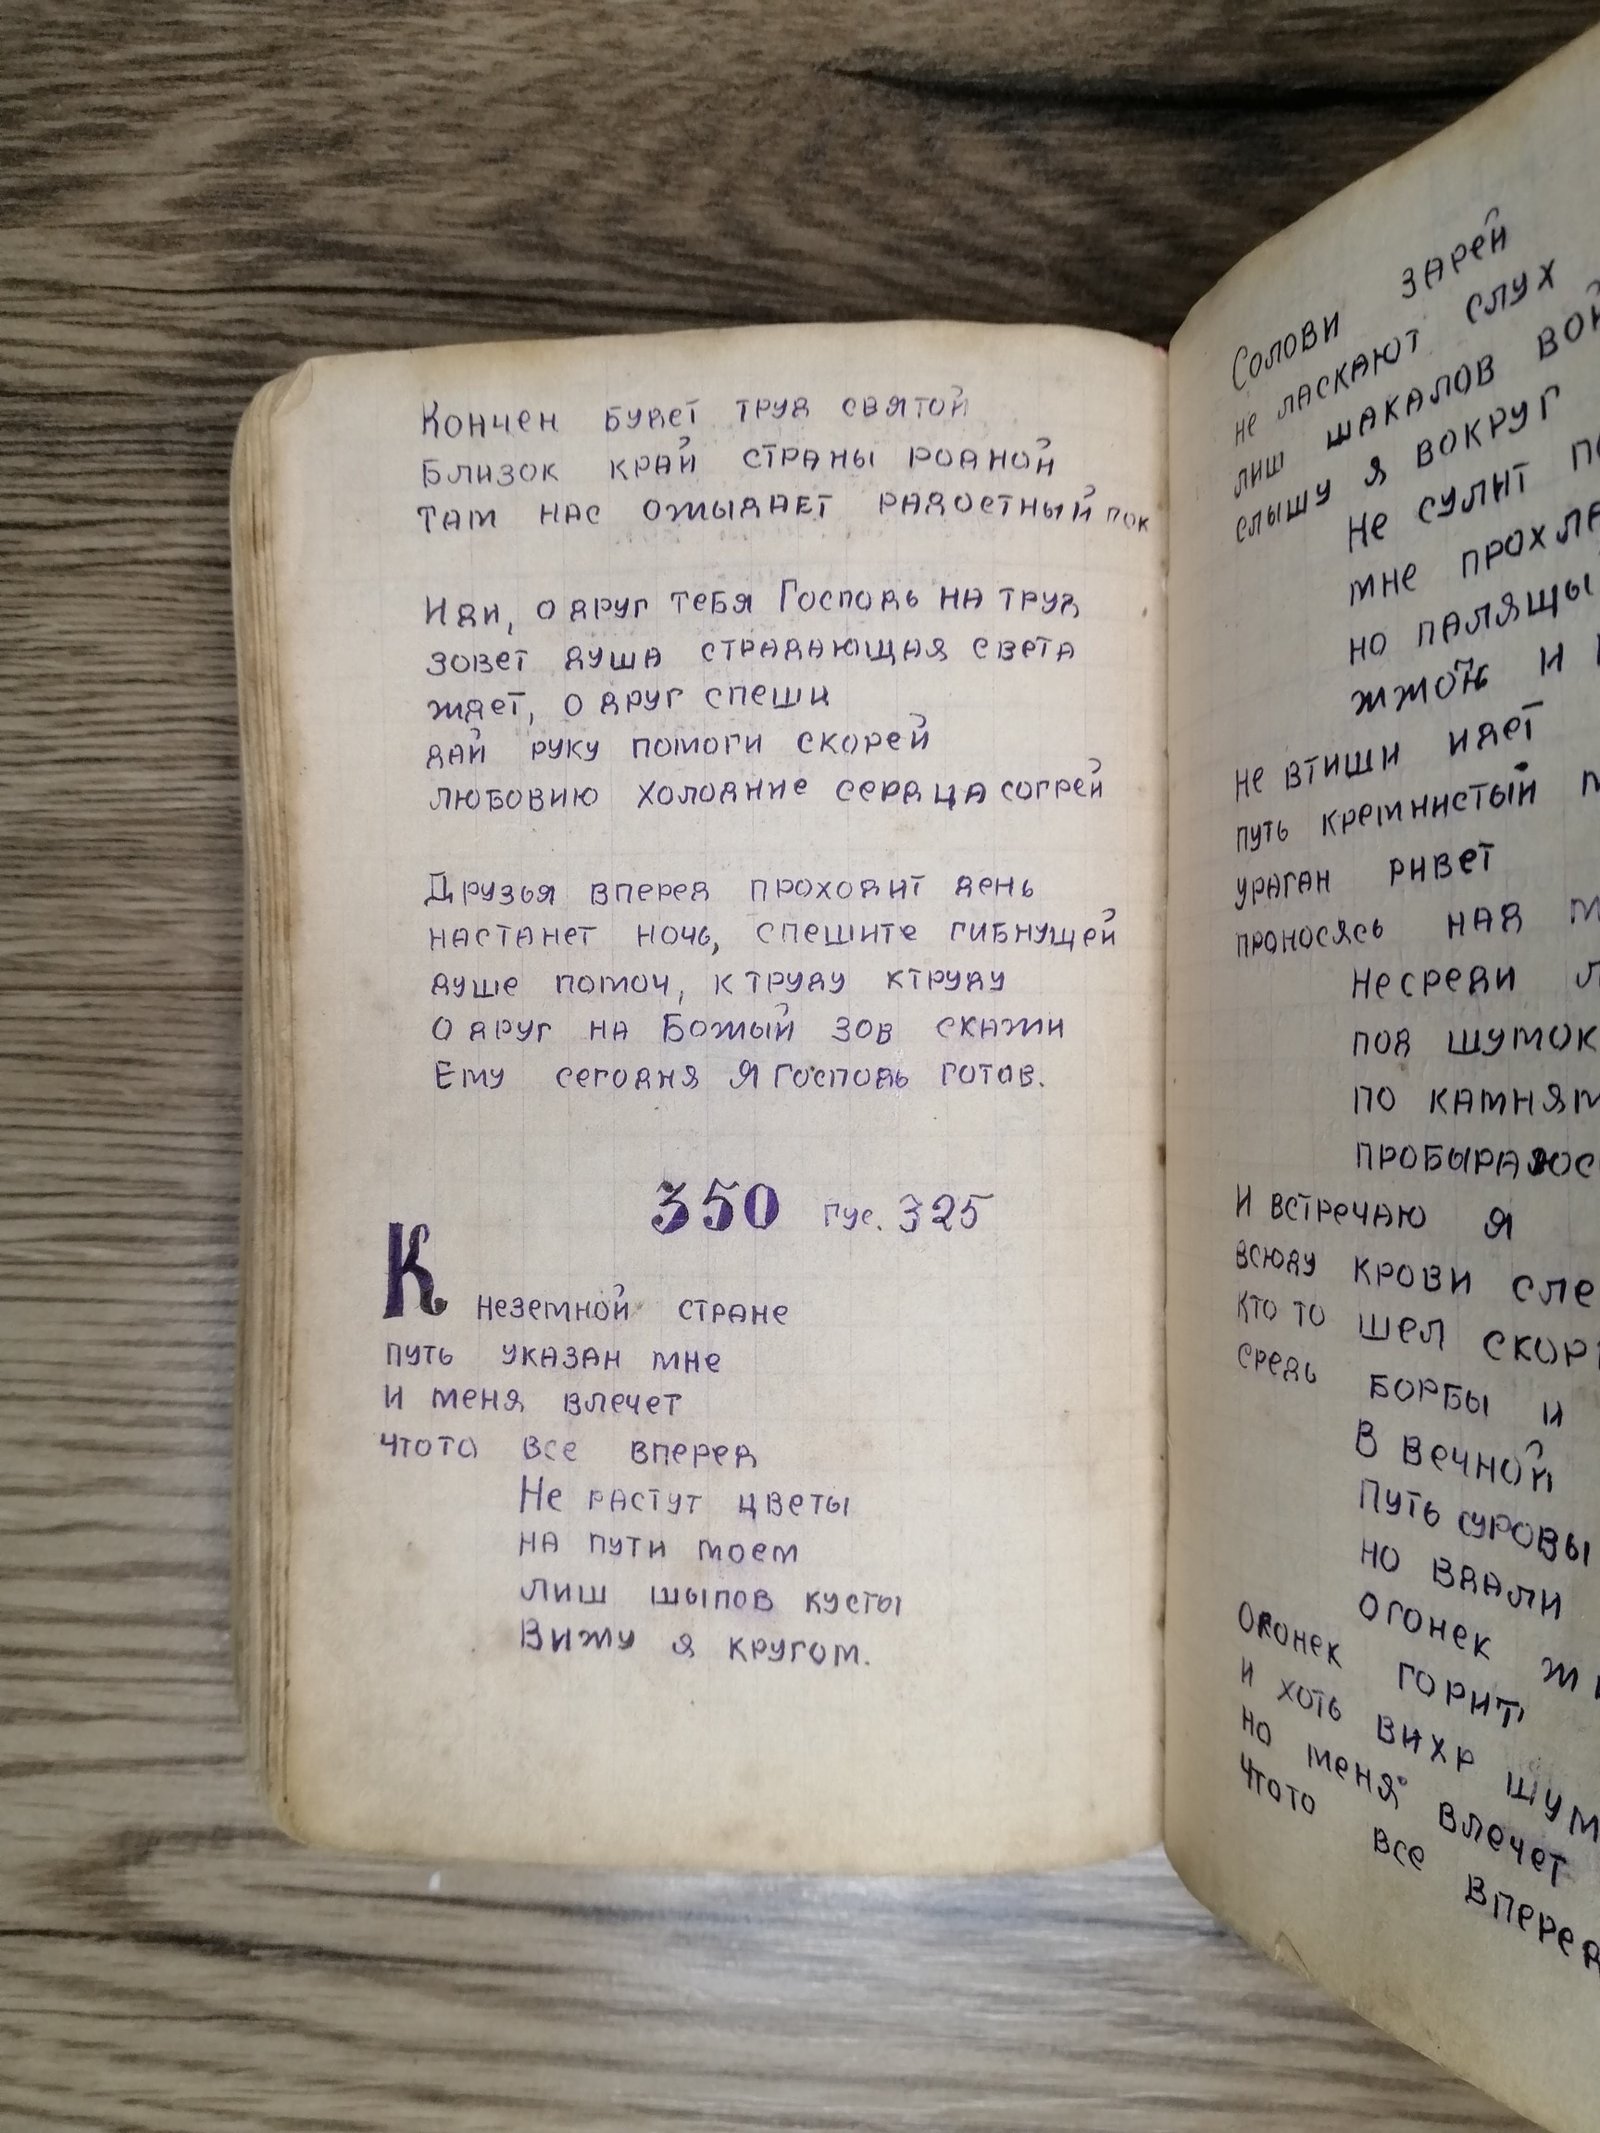 Кончен будет труд святой
Близок край страны родной
Там нас ожыдает радостный пок
Иди, о друг тебя Господь на труд
зовет душа страдающая света
ждет, о друг спеши
дай руку помоги скорей
любовию холодние сердца согрей
Друзья вперед проходит день
настанет ночь, спешите гибнущей
душе помоч, к труду ктруду
О друг на Божый зов скажи
Ему сегодня Я Господь готов.
350 гус. 325
К неземной стране
путь указан мне
и меня влечет
чтото все вперед
Не растут цветы
на пути моем
лиш шыпов кусты
Вижу я кругом.
Солови зарей
не ласкают слух
лиш шакалов вой
слышу я вокруг
Не сулит
мне
но
жжот и
не втиши идет
путь кремнистый
ураган ривет
проносясь над
Не среди
под
по
И встречаю я
всюду крови
кто то шел
средь борбы и
В вечной
Путь
но вдали
огонек
Огонек горит
и хоть вихр
но меня влечет
чтото все